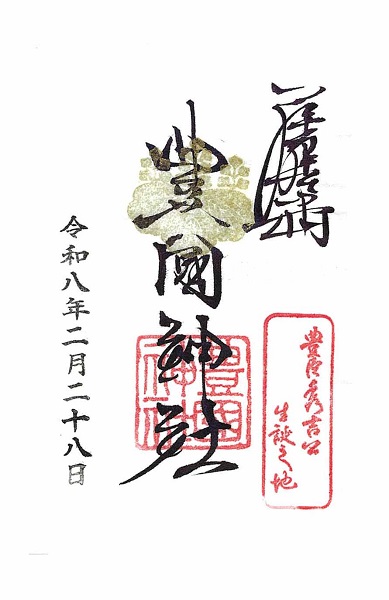 豊臣秀吉公
生誕之地
豊國神社
令和八年二月二十八日